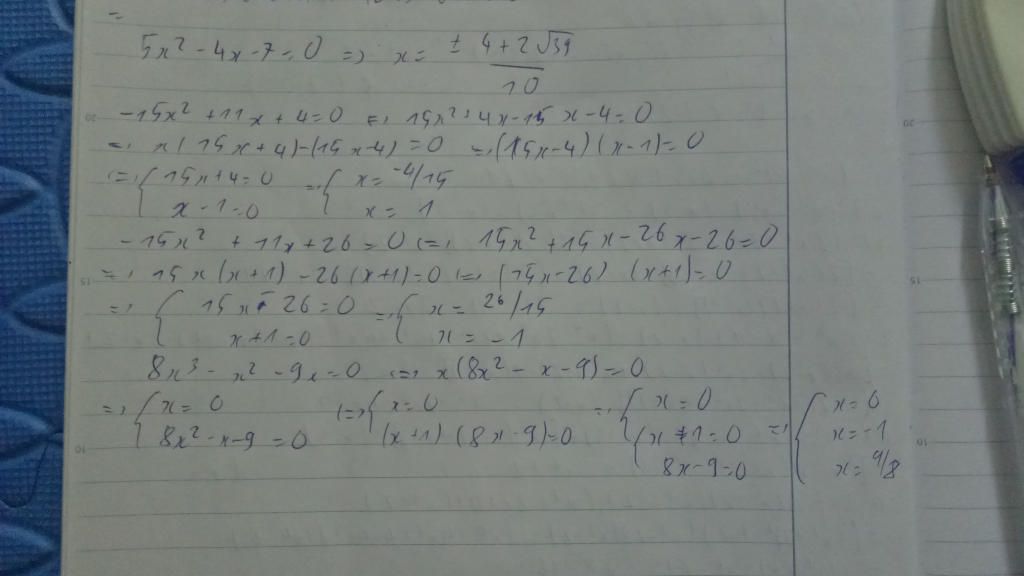 =
5x² - 4x - 7 = 0 => x = ± 4 + 2√39 / 10
-15x² + 11x + 4 = 0 <=> 15x² + 4x - 15x - 4 = 0
=> x(15x + 4) - (15x - 4) = 0 => (15x - 4)(x - 1) = 0
<=> { 15x + 4 = 0 => { x = -4/15
x - 1 = 0 x = 1
-15x² + 11x + 26 = 0 <=> 15x² + 15x - 26x - 26 = 0
=> 15x(x + 1) - 26(x + 1) = 0 <=> (15x - 26) (x + 1) = 0
=> { 15x - 26 = 0 => { x = 26/15
x + 1 = 0 x = -1
8x³ - x² - 9x = 0 <=> x(8x² - x - 9) = 0
=> { x = 0 <=> { x = 0 => { x = 0 => { x = 0
8x² - x - 9 = 0 (x + 1) (8x - 9) = 0 { x + 1 = 0 x = -1
8x - 9 = 0 x = 9/8